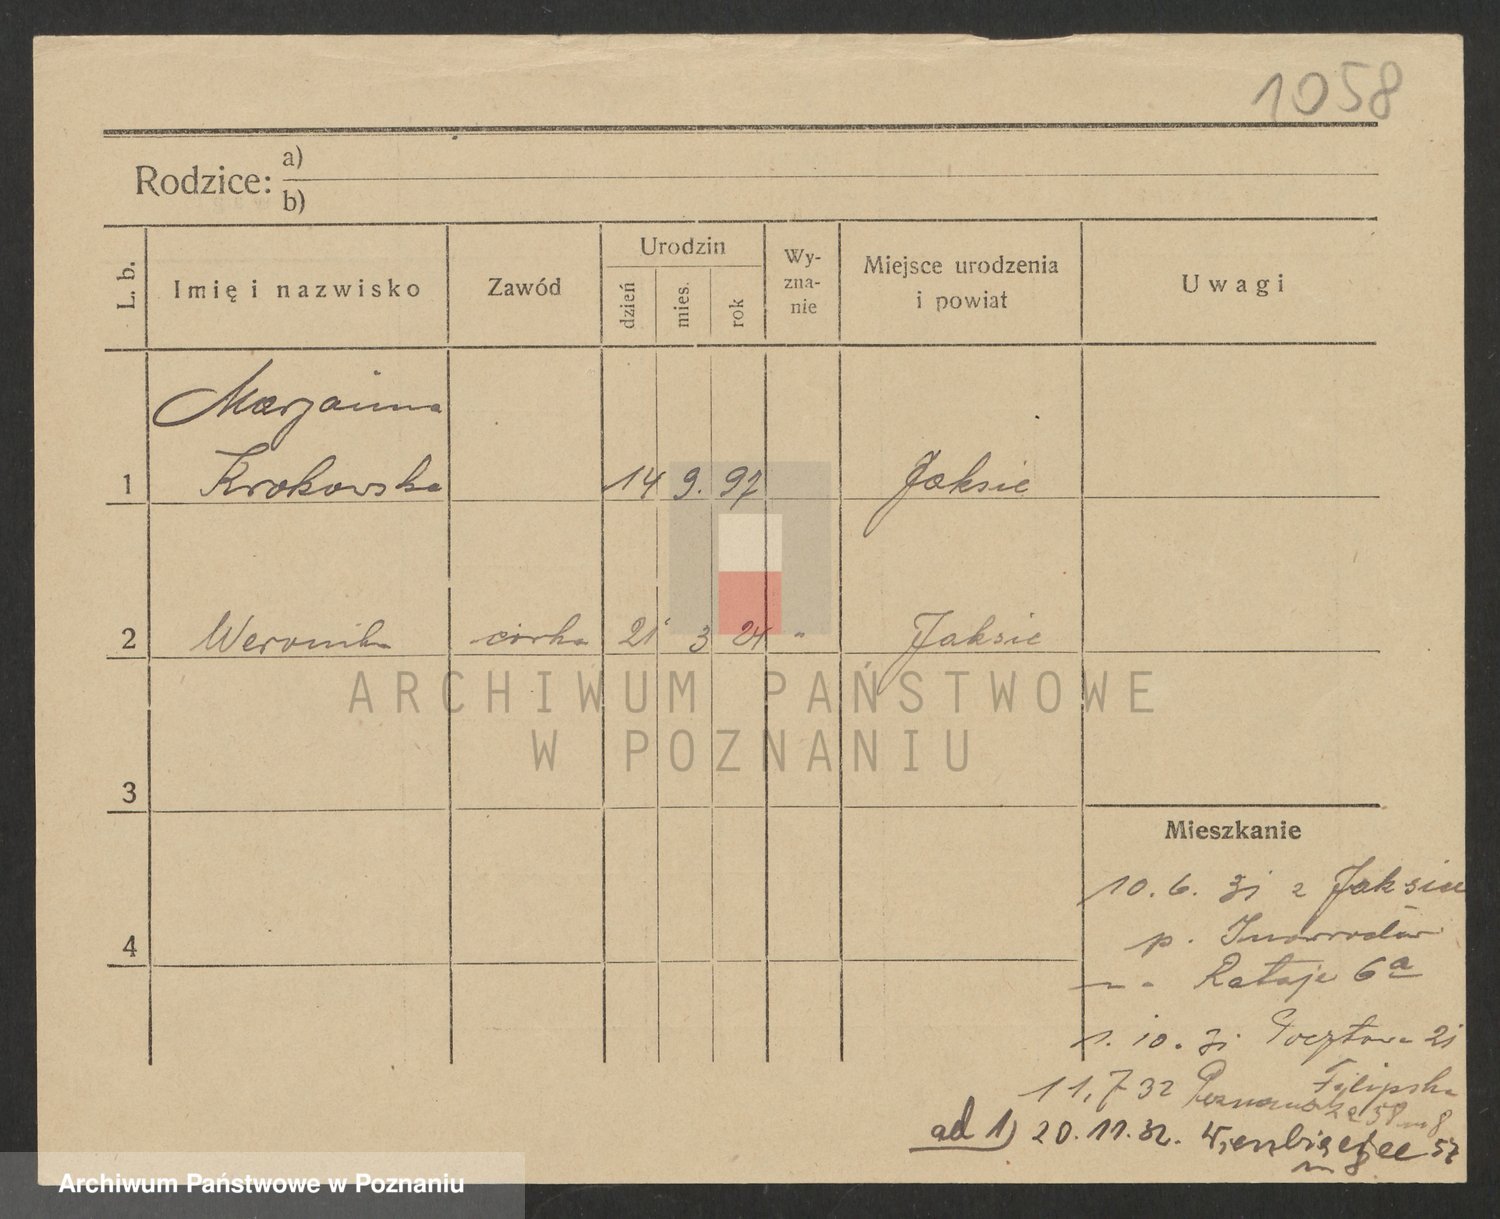 1058
Rodzice: a)
b)
L. b.
Imię i nazwisko
Zawód
Urodzin
dzień
mies.
rok
Wy-
zna-
nie
Miejsce urodzenia
i powiat
Uwagi
Marjanna
1 Krokowska 14 9. 97 Jaksic
2 Weronika córka 21 3 24 " Jaksic
ARCHIWUM PAŃSTWOWE
W POZNANIU
3
Mieszkanie
10. 6. 31 z Jaksic
4
p. Inowrocław
Rataje 6a
1. 10. 31 Pocztowa 21
Filipska
11,7 32 Poznańska 58 m 8
ad 1) 20. 11. 32. Wierzbięcice 57
m 8.
Archiwum Państwowe w Poznaniu